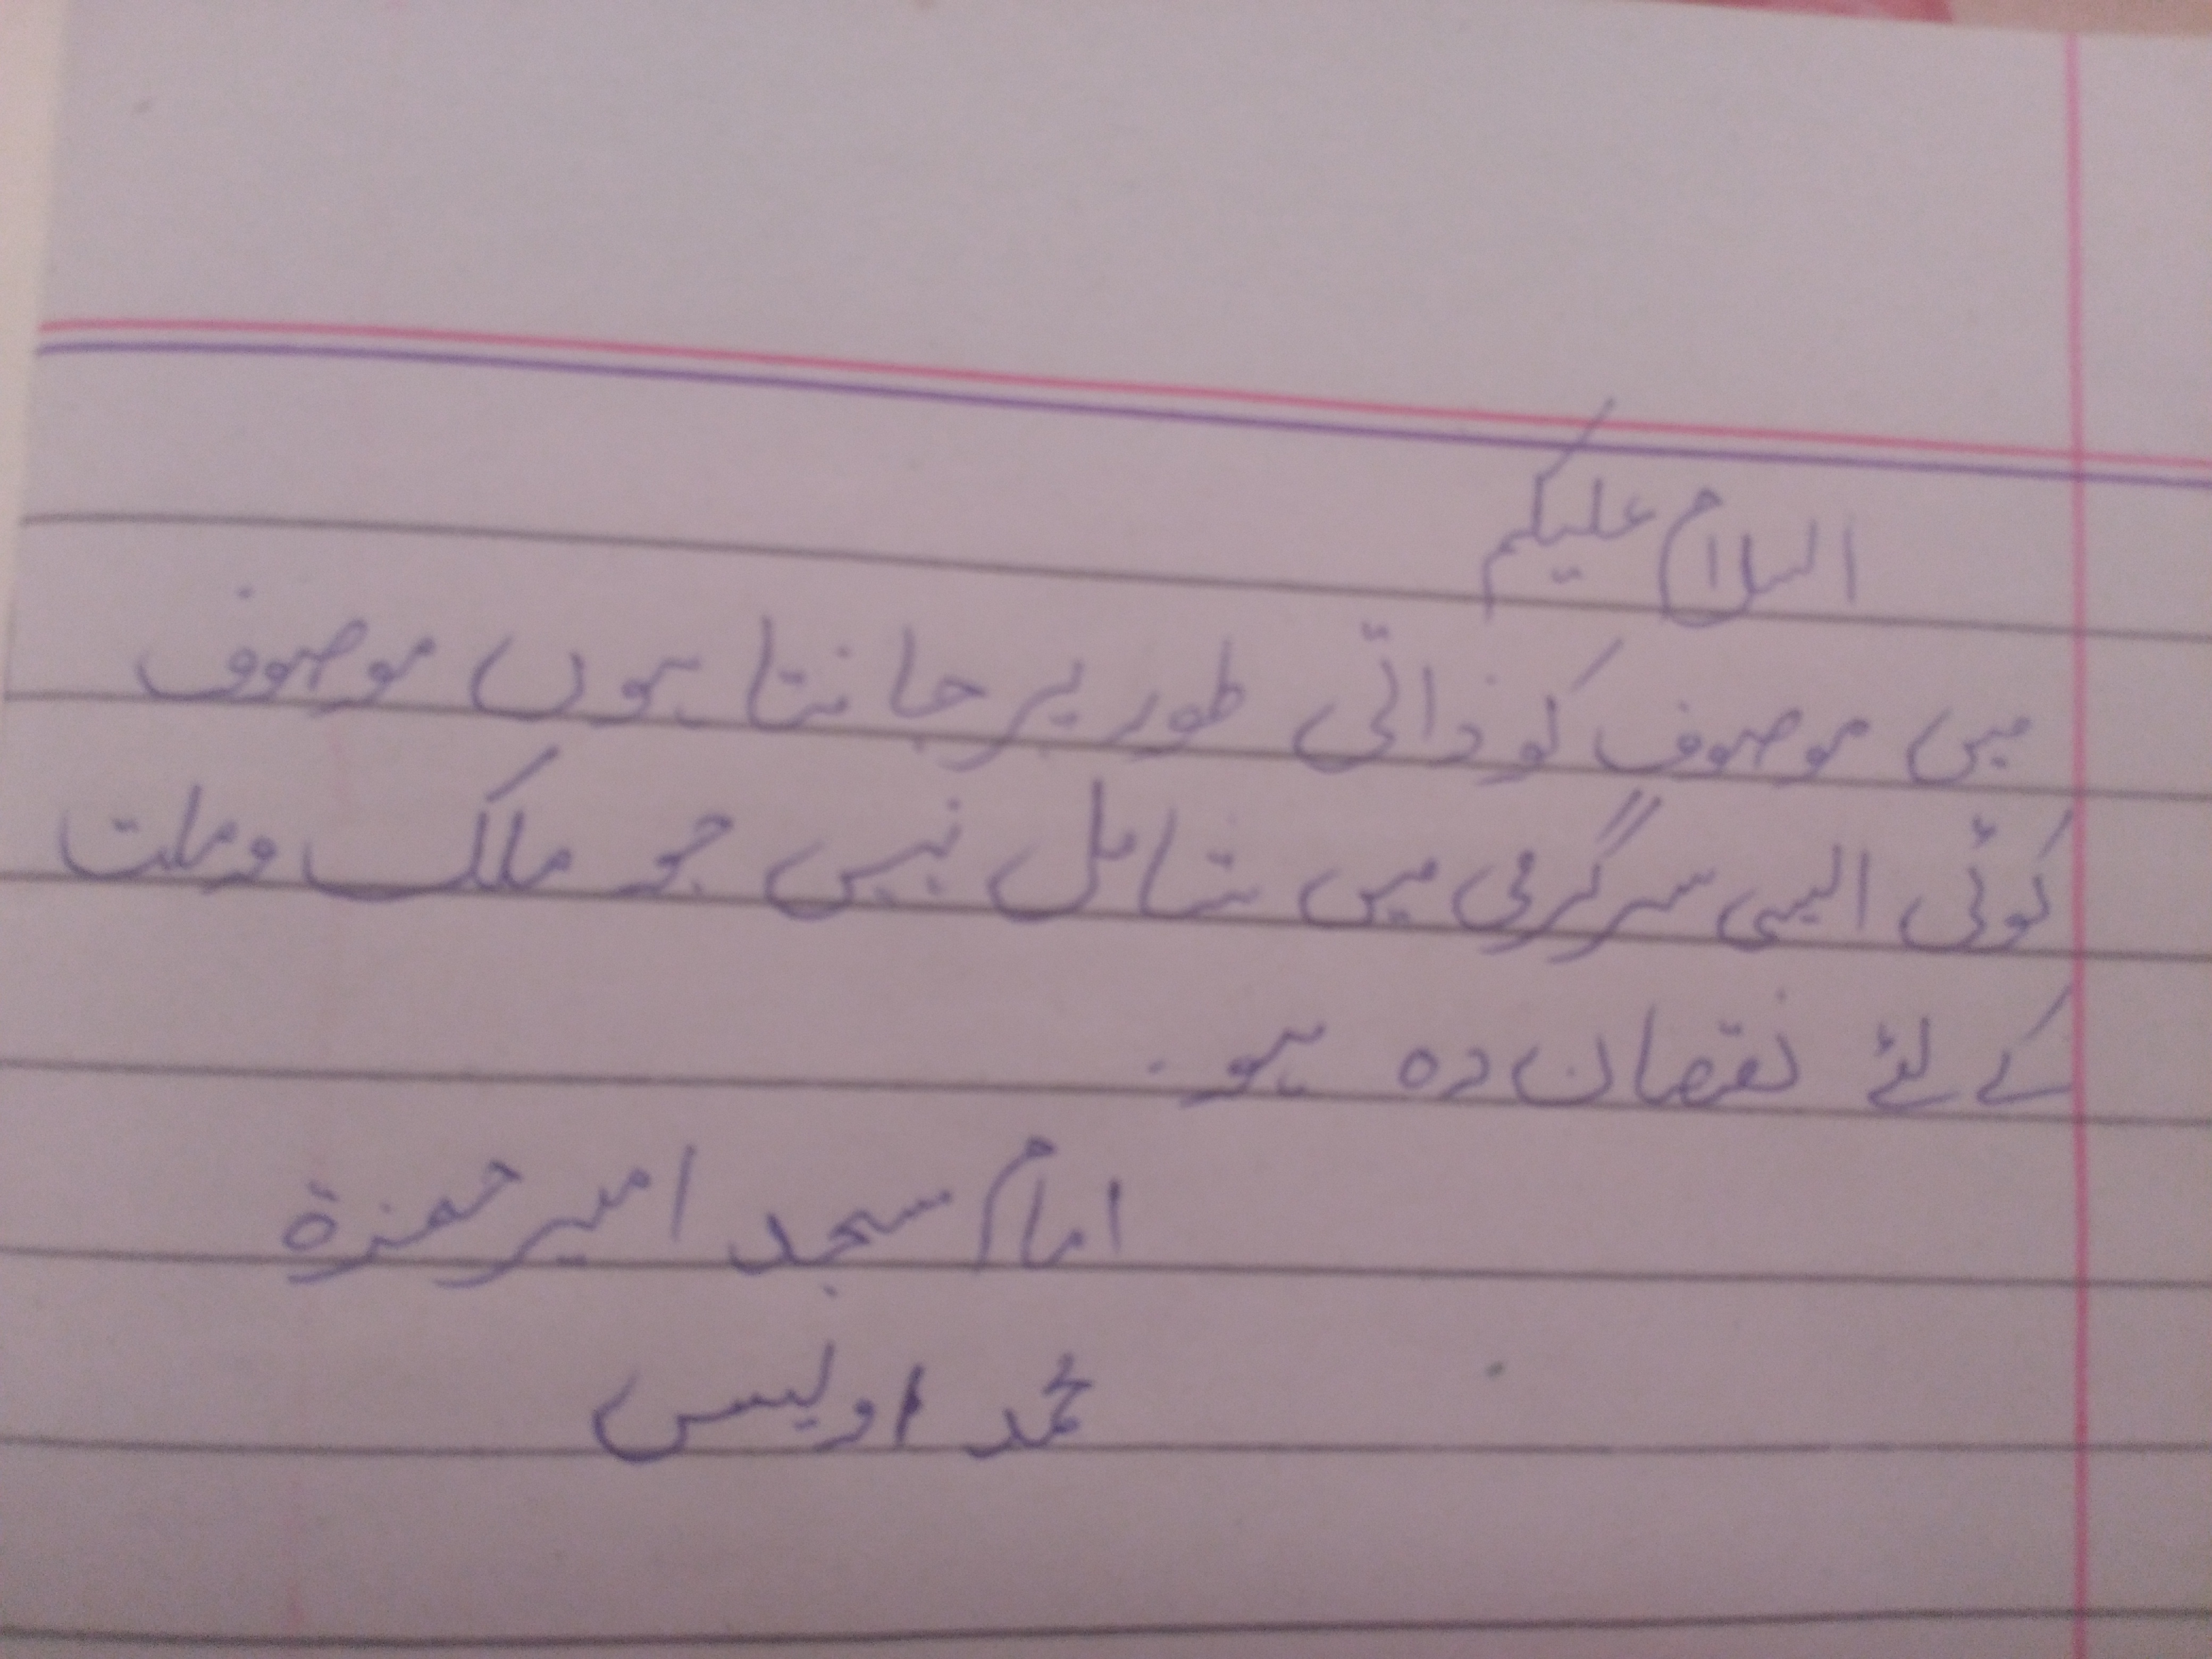 السلام علیکم
میں موصوف کو ذاتی طور پر جانتا ہوں موصوف
کوئی ایسی سرگرمی میں شامل نہیں جو ملک و ملت
کے لئے نقصان دہ ہو.
امام مسجد امیر حمزة
محمد اویس